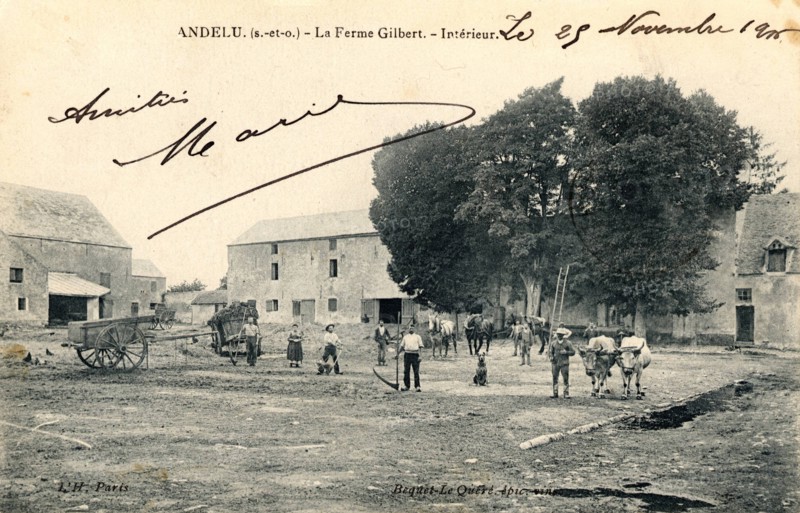 ANDELU. (s.-et-o.) - La Ferme Gilbert. - Intérieur. Le 25 Novembre
Amitiés
Marie
L'H, Paris
Bequet-Le Quéré, épic. vins